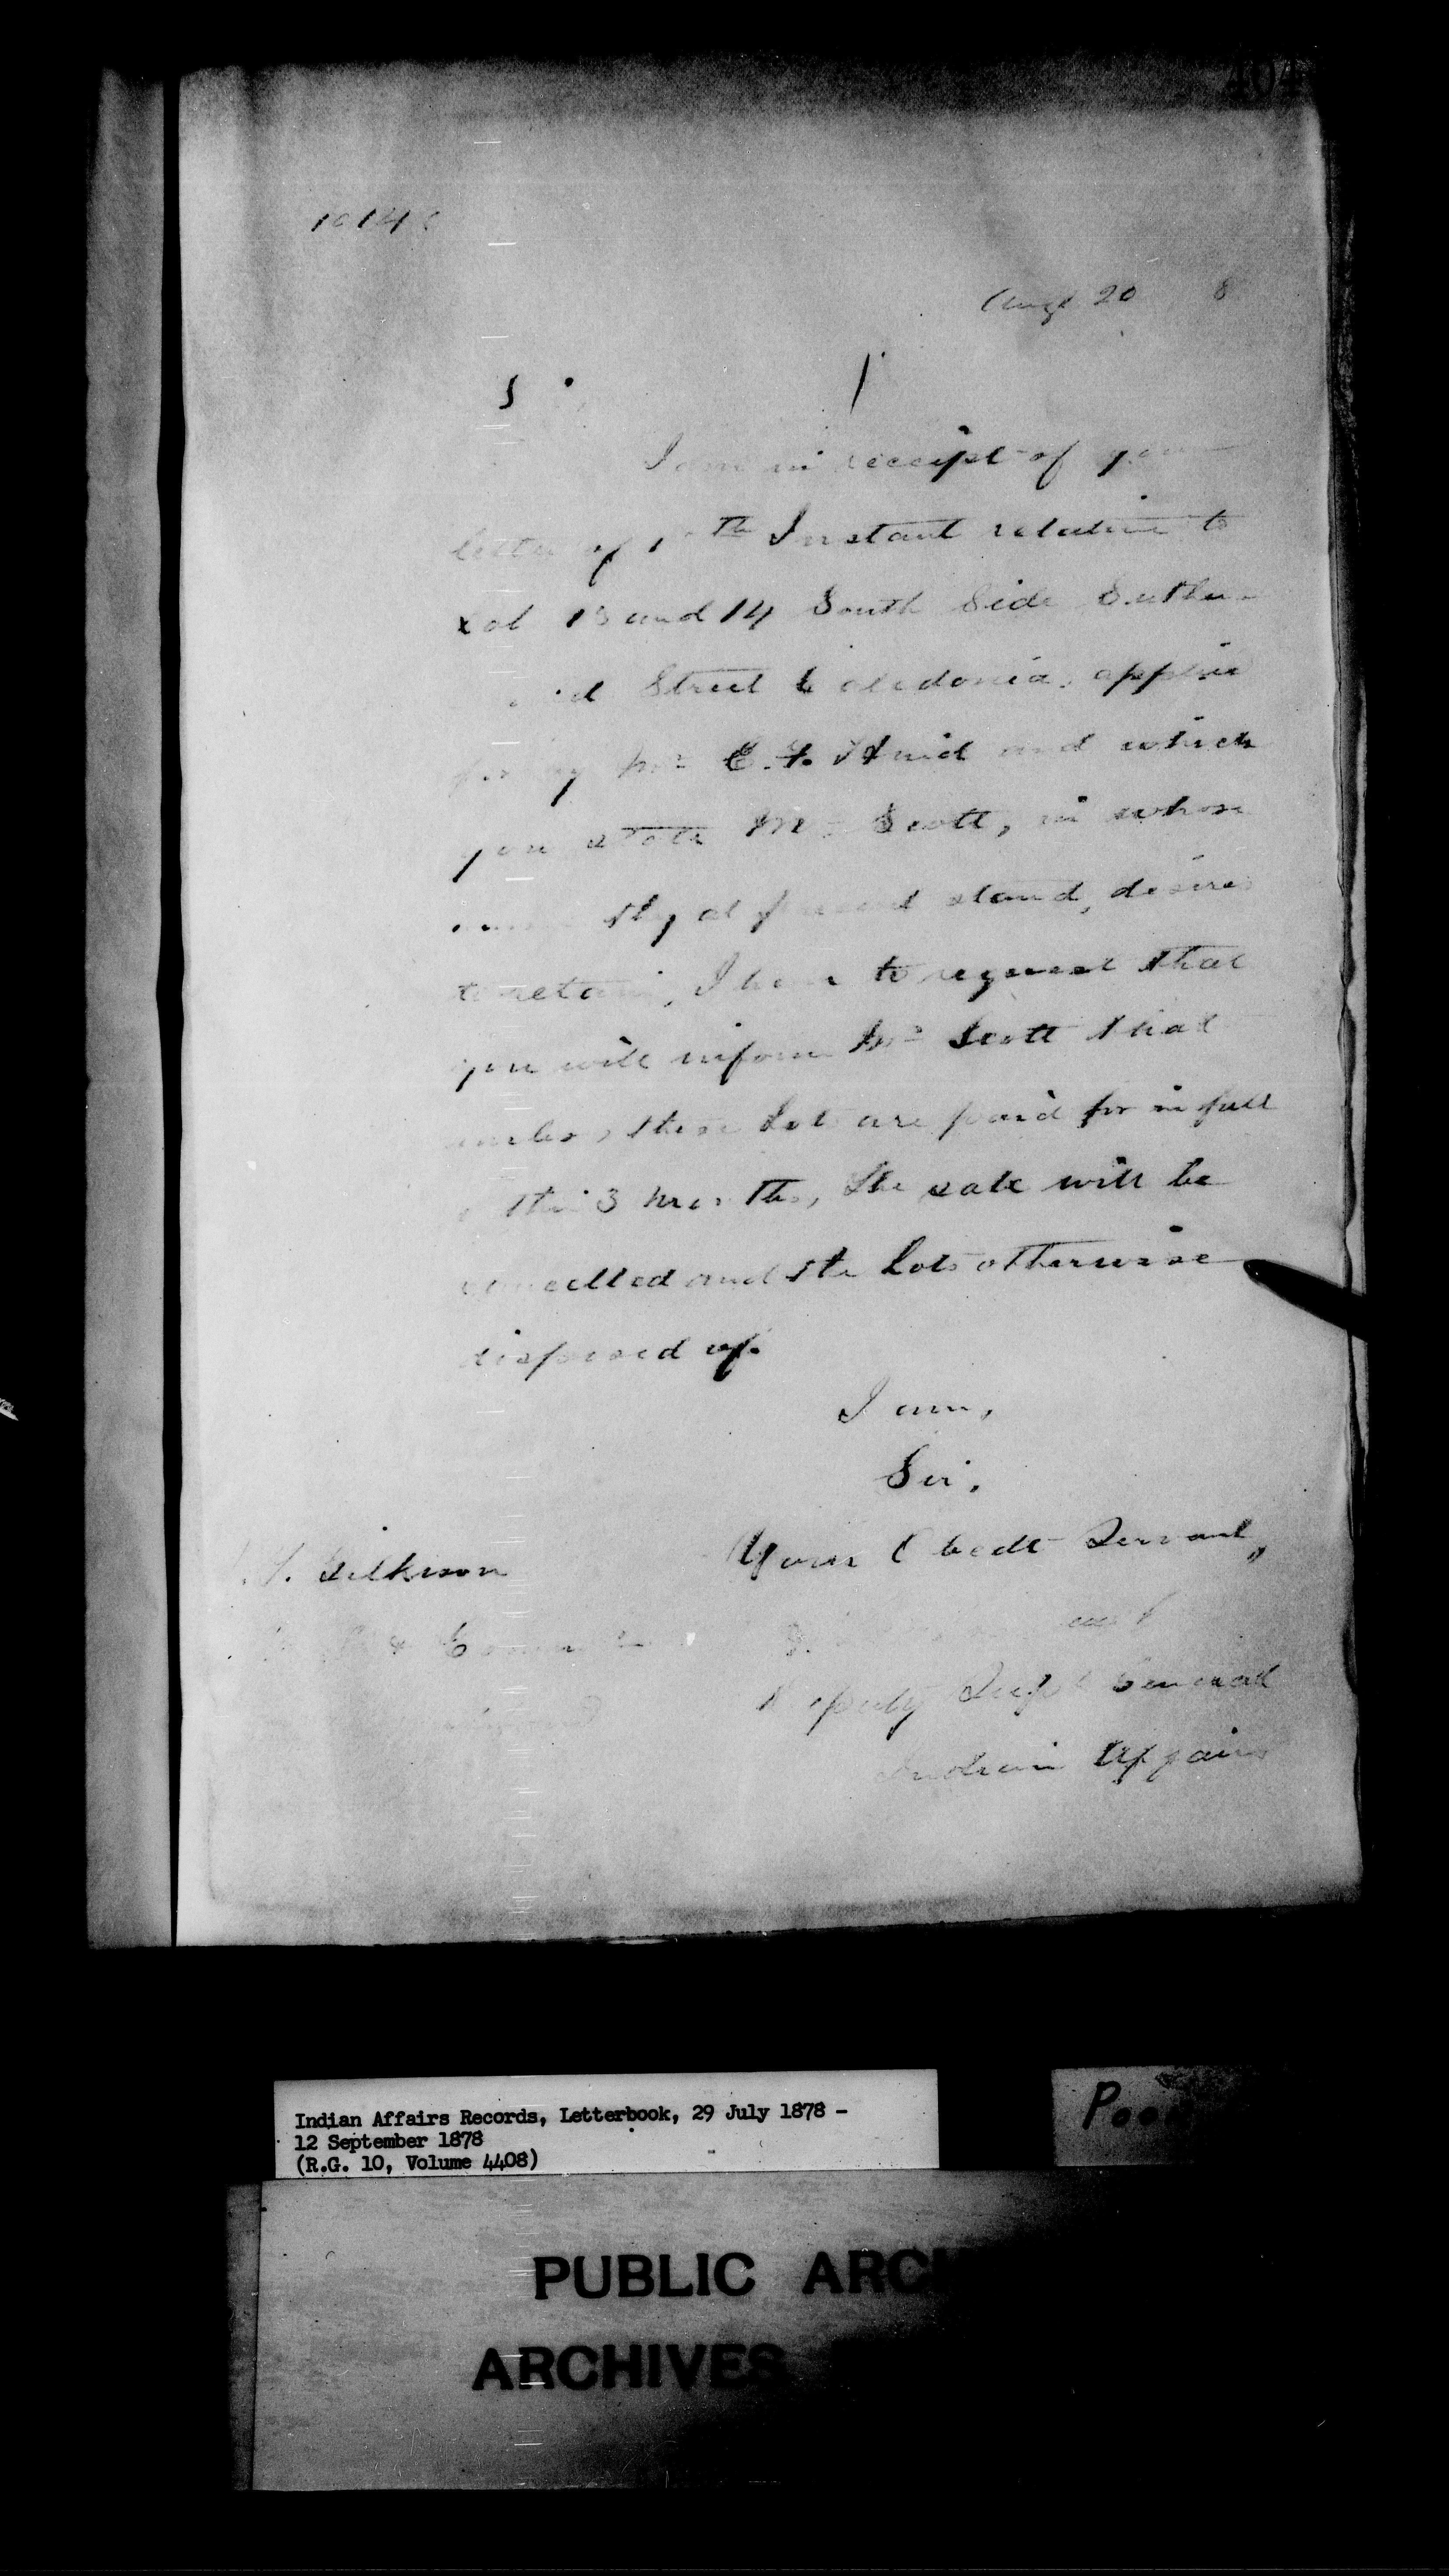 404
Augt 20 8
I am in receipt of your
letter of Th Instant relative to
Lot 13 and 14 South Side Suther-
Street Caledonia, applied
for by Mr and which
you state Mr Scott, in whose
name they at present stand, desires
to retain, I have to request that
you will inform Mr Scott that
unless these Lots are paid for in full
3 months, the sale will be
cancelled and the Lots otherwise
disposed of.
I am,
Sir,
Your Obedt Servant,
Gilkison
Deputy Supt General
Indian Affairs
Indian Affairs Records, Letterbook, 29 July 1878 -
12 September 1878
(R.G. 10, Volume 4408)
PUBLIC ARC
ARCHIVES